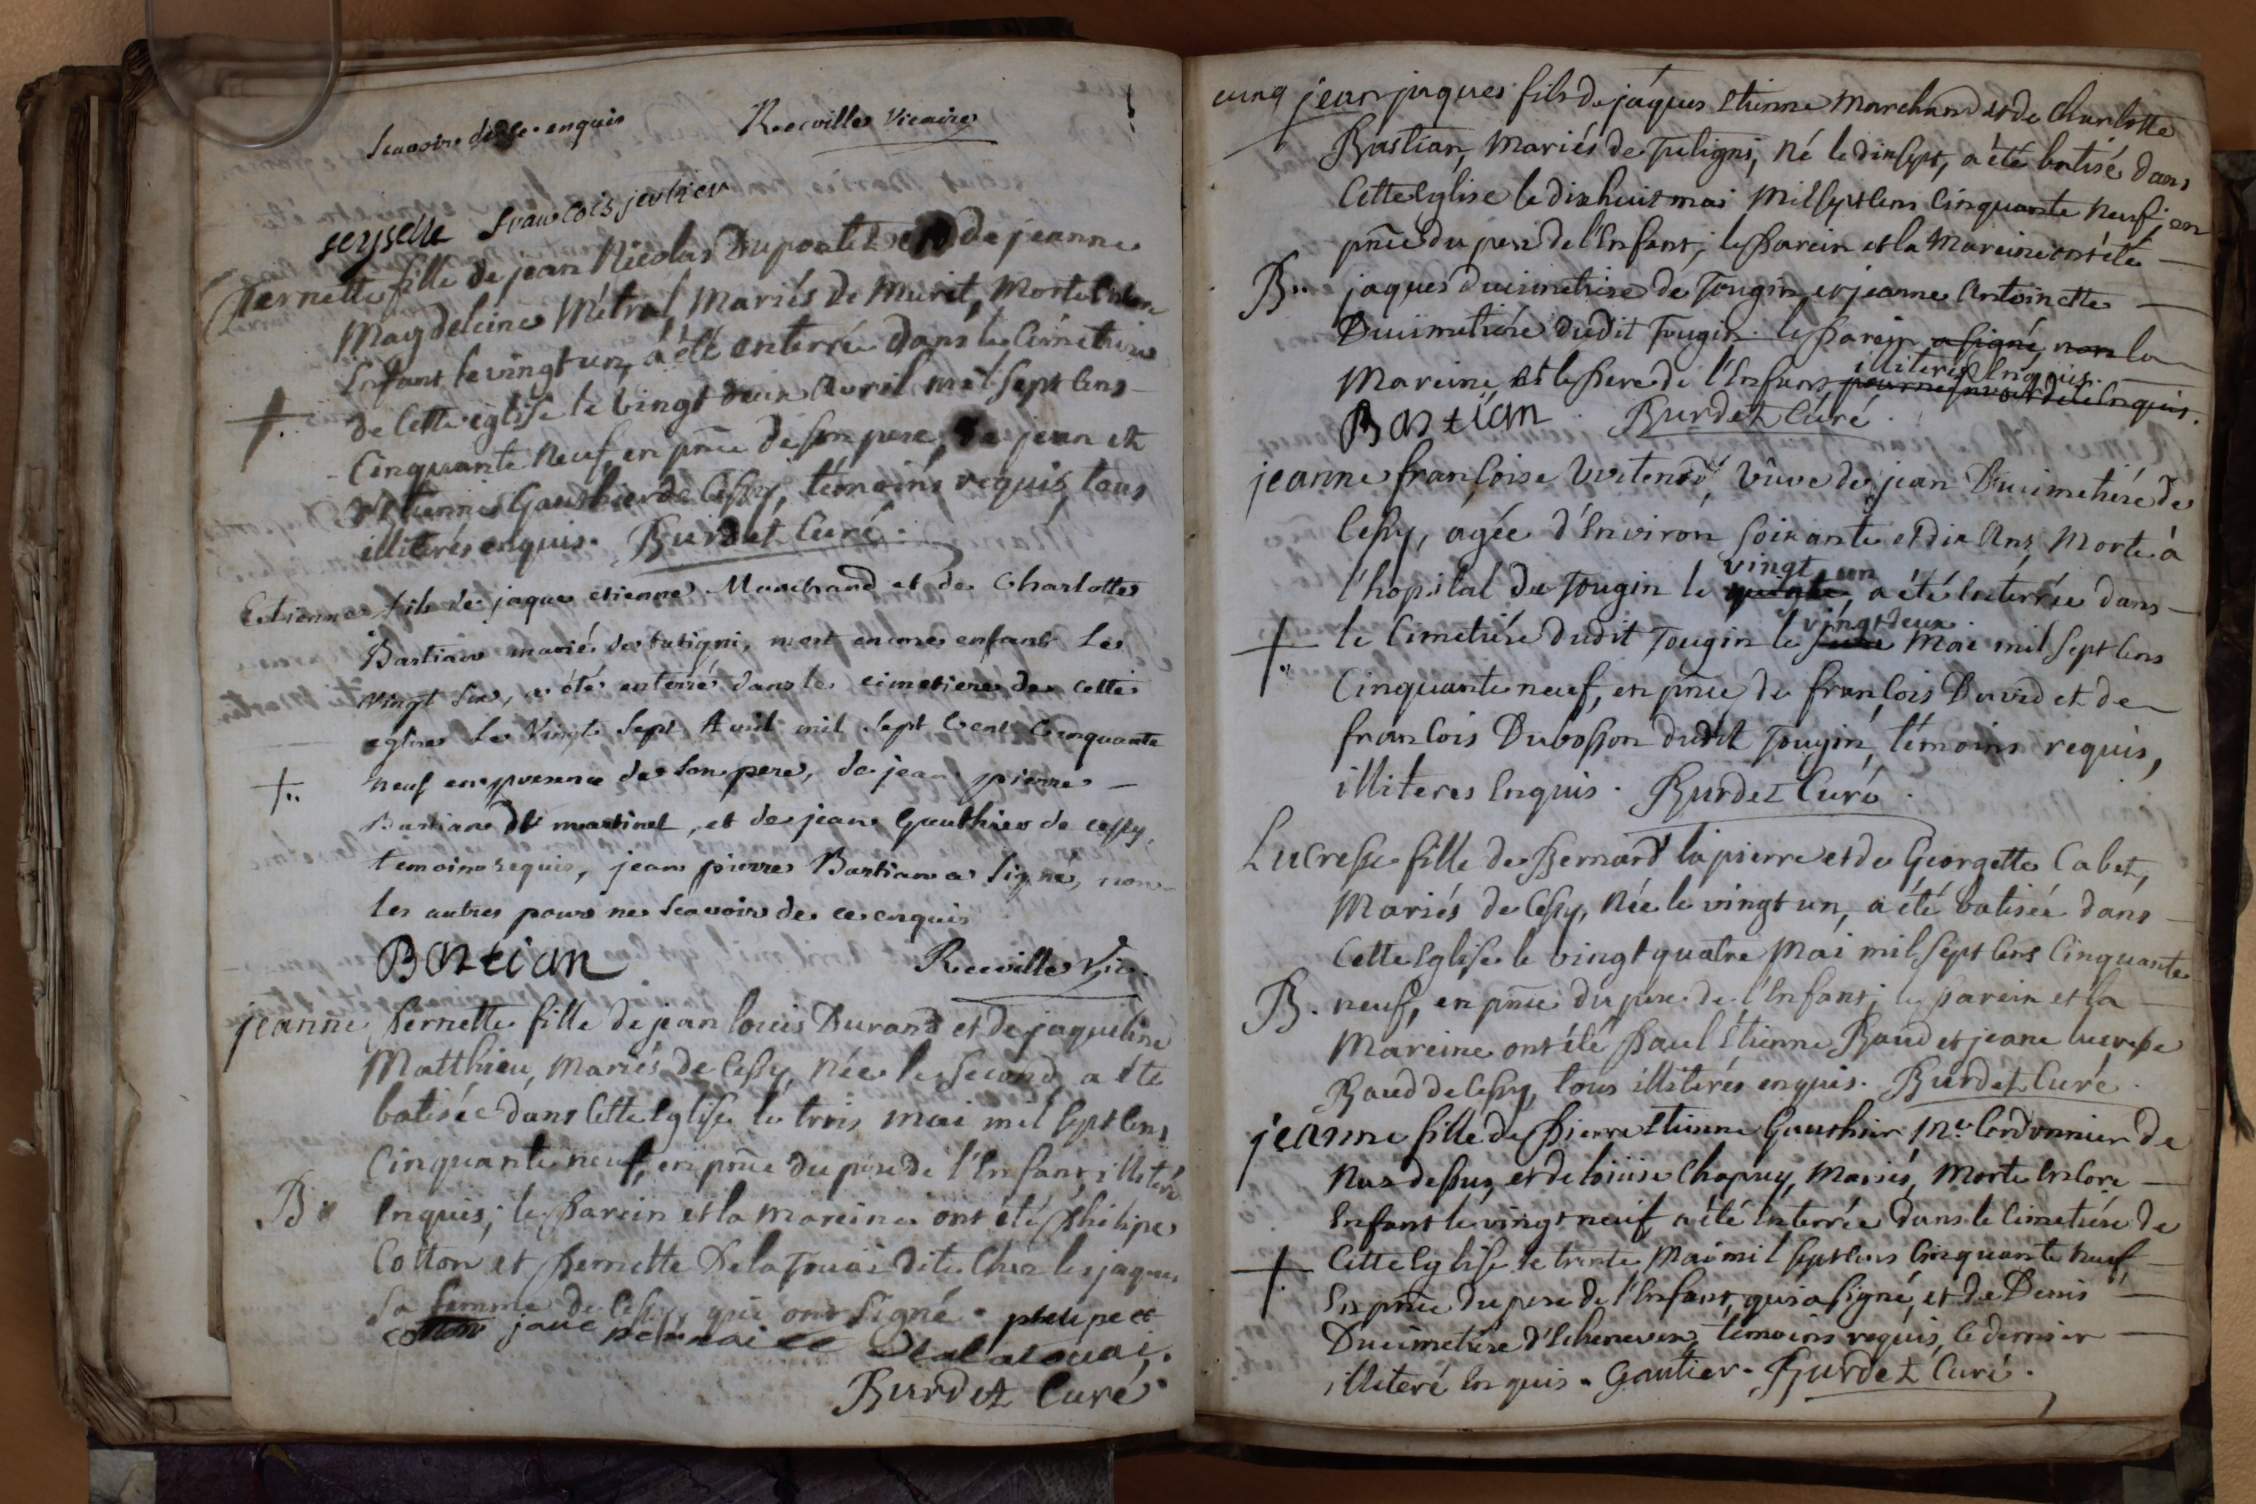 Scavoir de ce enquis Recville Vicaire
seyselle francois jeuthier
Pernette fille de jean Nicolas Dupontet et de jeanne
Magdeleine Métral, Mariés de Murit, Morte Encore
Enfant le vingt un, a été enterrée dans le Cimetiére
de Cette eglise le vingt deux Avril mil sept Cens
Cinquante Neuf, en pnce de son pere, de jean et
Etienne Gauthier de Cessy, témoins requis, tous
illiterés enquis. Burdet Curé.
Estienne fils de jaque etienne Marchand et de Charlotte
Bastian marié de tutigni, mort encore enfant Le
vingt six, a été enterré dans le cimetiere de cette
eglise Le Vingt Sept Avril mil Sept Cent Cinquante
neuf en presence de Son pere, de jean pierre
Bastian de martinet, et de jean Gauthier de cessy,
temoins requis, jean pierre Bastian a Signé, non
les autres pour ne Scavoir de ce enquis
Bastian Recville Vic.
jeanne Pernette fille de jean louis Durand et de jaqueline
Matthieu, Mariés de Cessy, Née le second a été
batisée dans Cette Eglise le trois mai mil sept Cens
Cinquante neuf, en pnce du pere de l'Enfant, illiteré
Enquis; le Parein et la Mareine ont été Philipe
Cotton et Pernette Delatouai dite Chez les jaques
Sa femme de Cessy, qui ont Signé. phelipe et
cotton
Delatouai.
Burdet Curé.
cinq jean jaques fils de jaques Etienne Marchand et de Charlotte
Bastian, Mariés de Tutigni, Né le dix sept, a été batisé dans
Cette Eglise le dix huit mai Mil sept Cens Cinquante Neuf, en
pnce du pere de l'Enfant; le Parein et la Mareine ont été
B.. jaques Ducimetiére de Tougin, et jeanne Antoinette
Ducimetiére dudit Tougin. le Parein a signé, non la
illiterés Enquis.
Mareine et le Pere de l'Enfant pour ne savoir de ce Enquis.
Bastian. Burdet Curé.
jeanne francoise Vertend, Vûve de jean Ducimetiére de
Cessy, agée d'Environ Soixante et dix Ans, Morte à
vingt un
l'hopital de Tougin le a été Enterrée dans
vingt deux
le Cimetiére dudit Tougin le Mai mil Sept Cens
Cinquante neuf, en pnce de françois David et de
francois Dubosson dudit Tougin, témoins requis,
illiteres Enquis. Burdet Curé.
Lucresse fille de Bernard lapierre et de Georgette Cabet,
Mariés de Cessy, Née le vingt un, a été batisée dans
Cette Eglise le vingt quatre Mai mil Sept Cens Cinquante
B. neuf, en pnce du pere de l'Enfant; le parein et la
Mareine ont été Paul Etienne Baud et jeane lucresse
Baud de Cessy, tous illiterés enquis. Burdet Curé.
jeanne fille de Pierre Etienne Gauthier Me Cordonnier de
Naz dessus, et de loüise Chapuy, Mariés, Morte Encore
Enfant le vingt neuf, a été Enterrée dans le Cimetiére de
Cette Eglise le trente Mai mil sept Cens Cinquante Neuf
En pnce du pere de l'Enfant, qui a signé, et de Denis
Ducimetiére d'Echenevex, témoins requis, le dernier
illiteré Enquis. Gautier. Burdet Curé.